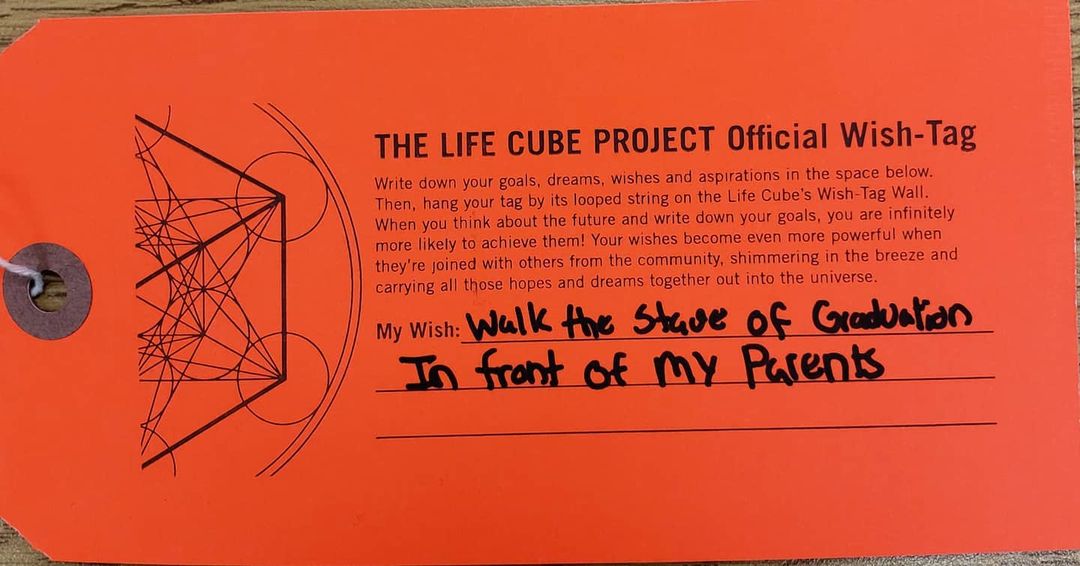 THE LIFE CUBE PROJECT Official Wish-Tag
Write down your goals, dreams, wishes and aspirations in the space below.
Then, hang your tag by its looped string on the Life Cube's Wish-Tag Wall.
When you think about the future and write down your goals, you are infinitely
more likely to achieve them! Your wishes become even more powerful when
they're joined with others from the community, shimmering in the breeze and
carrying all those hopes and dreams together out into the universe.
My Wish: Walk the Stave of Graduation
In front of My Parents